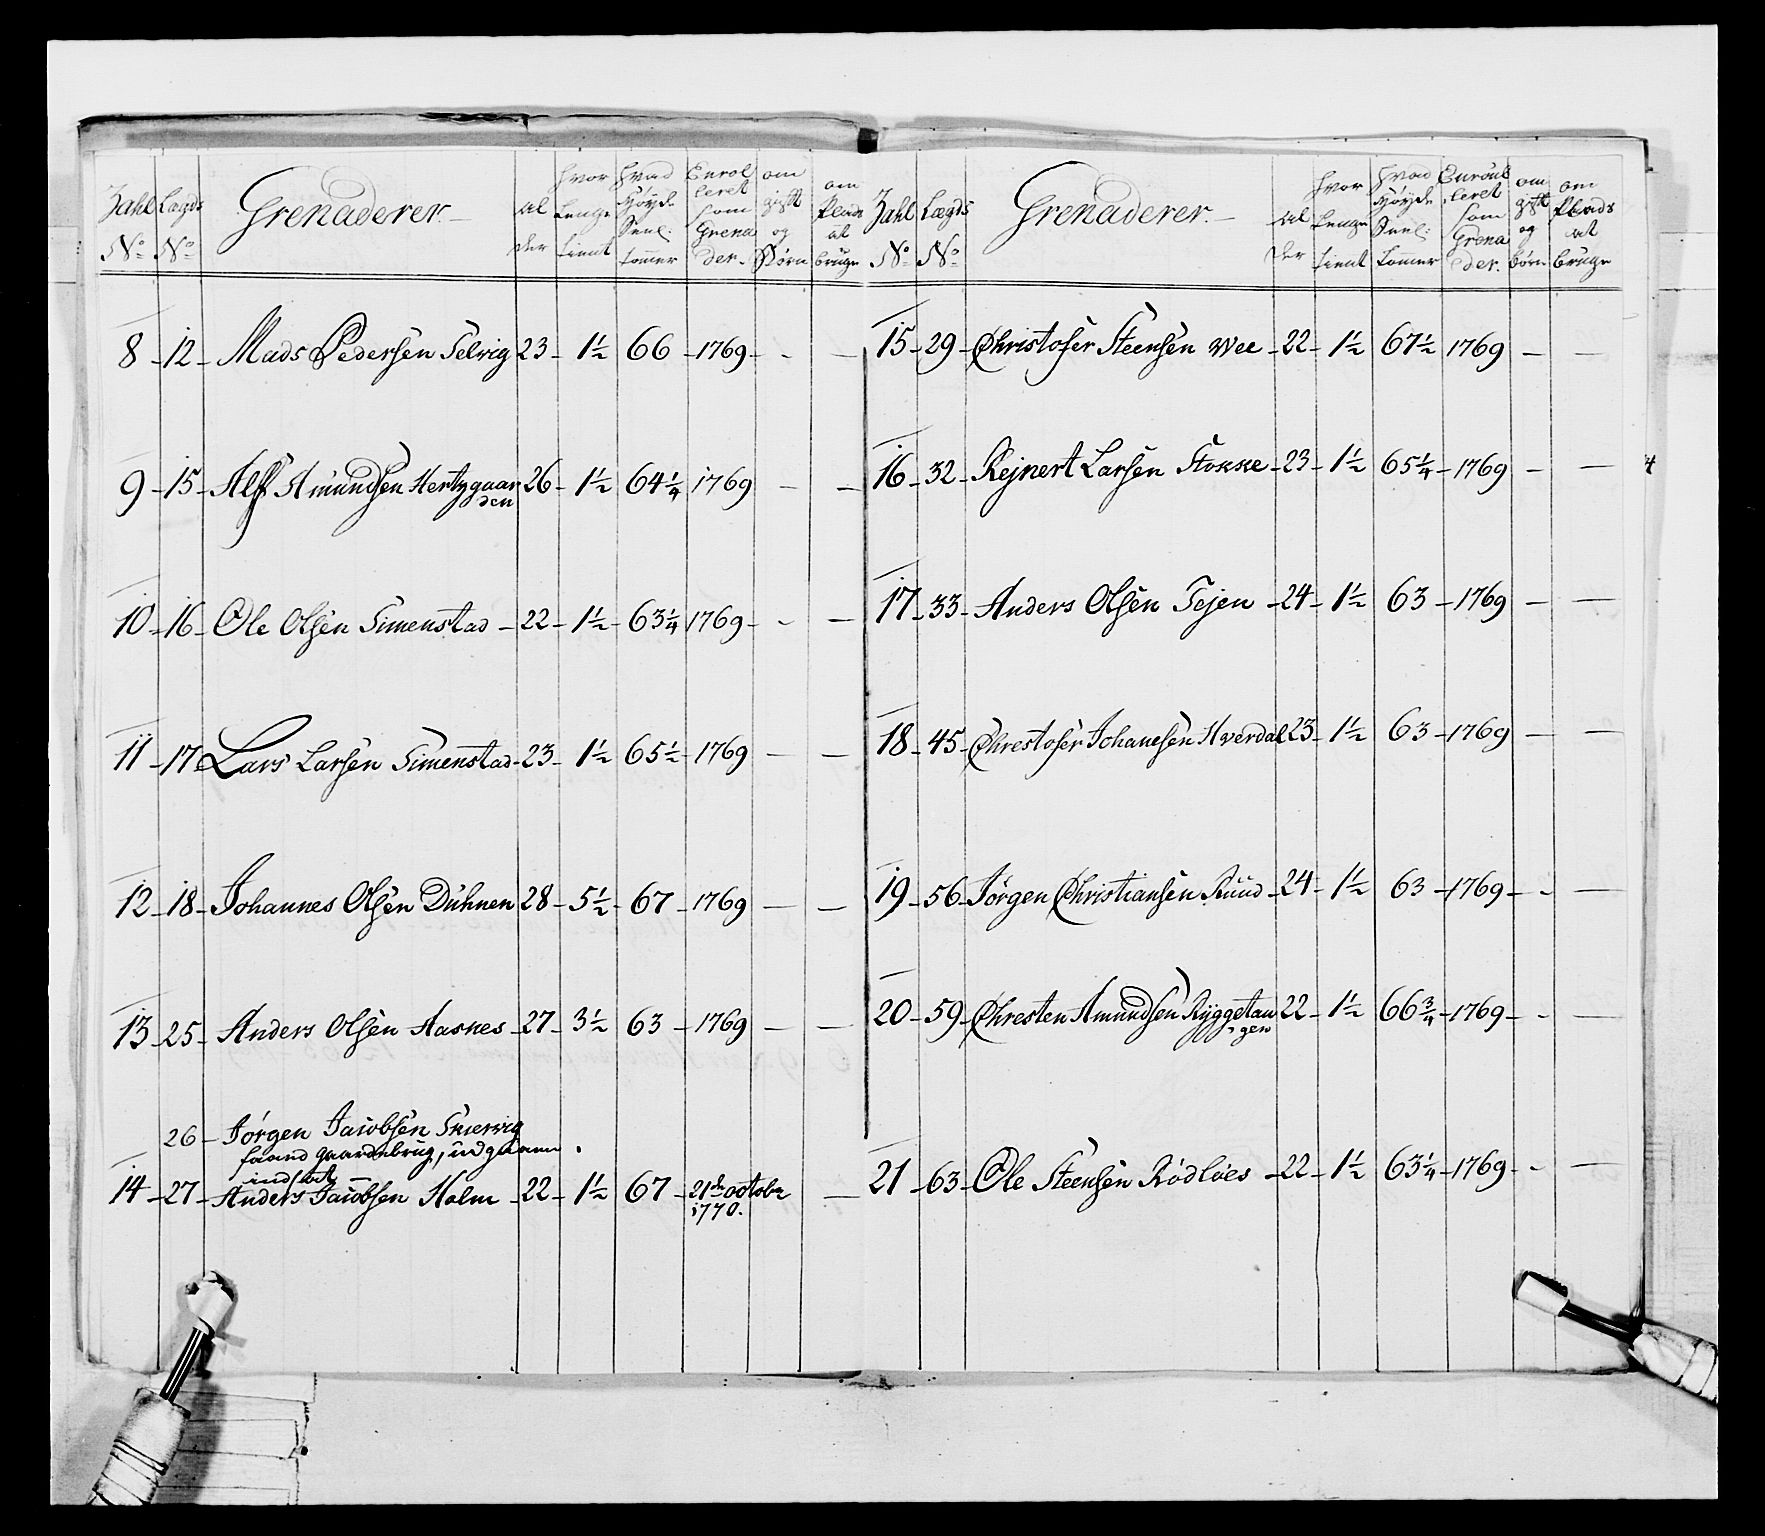 Zahl Lægds Grenaderer. al der hvor lenge tient hvad Høyde Snel: tommer Enrolleret som Grenader. om gift og Børn om Plads at bruge
No No
8 - 12 - Mads Pedersen Selvig 23 - 1½ 66 - 1769 - - -
9 - 15 - Alf Amundsen Hertzgaarden 26 - 1½ 64¼ 1769 - -
10 - 16 - Ole Olsen Simenstad - 22 - 1½ - 63¼ 1769 - - -
11 - 17 Lars Larsen Simenstad - 23 - 1½ 65½ - 1769 - -
12 - 18 - Johannes Olsen Duhnen 28 - 5½ - 67 - 1769 - -
13 - 25 - Anders Olsen Aasnes - 27 - 3½ 63 - 1769 - -
26 - Jørgen Jacobsen
faaed gaardebrug, udgaaen
indsat
14 - 27 - Anders Jacobsen Holm - 22 - 1½ 67 - 21de octobr -
1770.
Zahl Lægds Grenaderer. al der hvor lenge tient hvad Høyde Snel: tommer Enroulleret som Grenader. om gift og børn om Plads at bruge
No No
15 - 29 - Christofer Steensen Wee - 22 - 1½ 67½ 1769 - -
16 - 32 - Rejnert Larsen Stokke - 23 - 1½ 65¼ - 1769 - -
17 - 33 - Anders Olsen Tejen - 24 - 1½ 63 - 1769 - -
18 - 45 - Chrestofer Johanesen Hverdal 23 - 1½ 63 - 1769 - -
19 - 56 - Jørgen Christiansen Ruud - 24 - 1½ 63 - 1769 - - -
20 - 59 - Chresten Amundsen Ryggetangen 22 - 1½ 66¾ - 1769 - - -
21 - 63 - Ole Steensen Rødløes - 22 - 1½ 63¼ - 1769 - - -